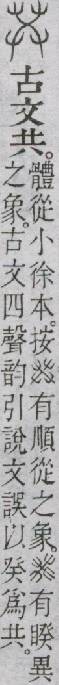 古文共。
體從小徐本。按有順從之象。有睽異
之象。古文四聲韵引說文誤以癸爲共。